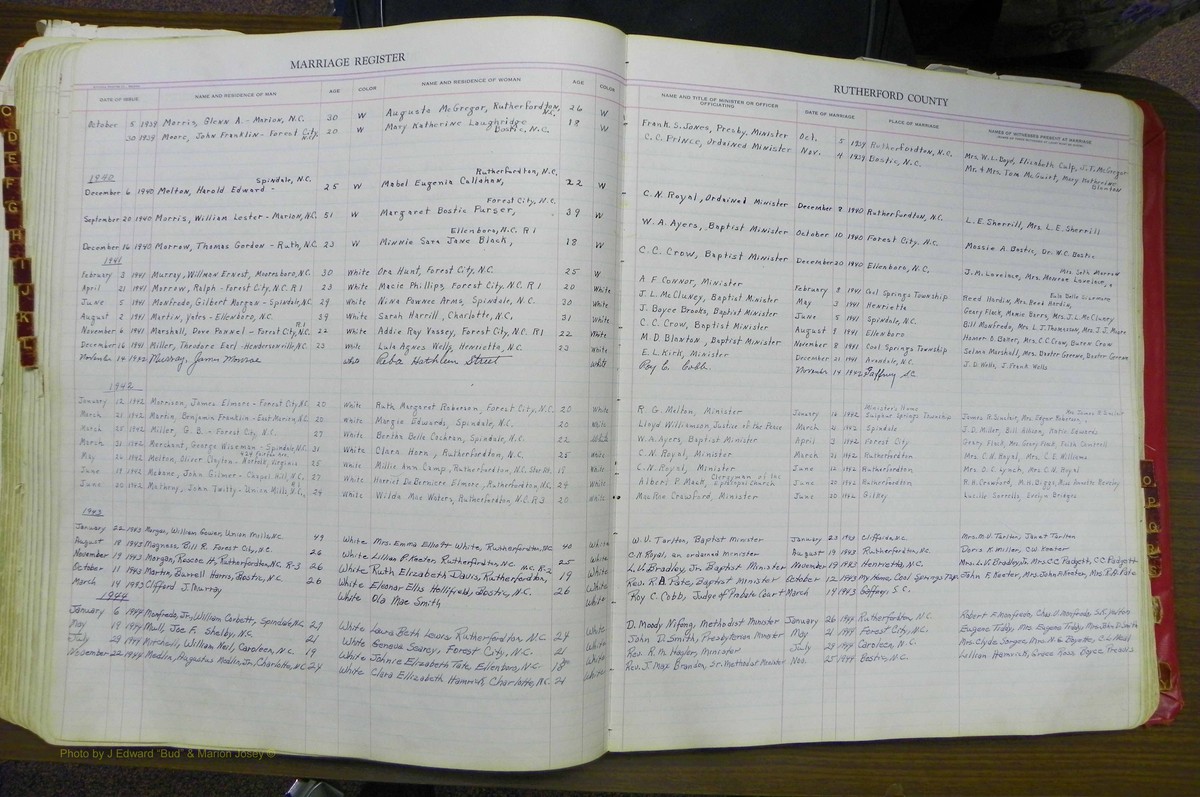 MARRIAGE REGISTER
RUTHERFORD COUNTY
DATE OF ISSUE NAME AND RESIDENCE OF MAN AGE COLOR NAME AND RESIDENCE OF WOMAN AGE COLOR
NAME AND TITLE OF MINISTER OR OFFICER OFFICIATING DATE OF MARRIAGE PLACE OF MARRIAGE NAMES OF WITNESSES PRESENT AT MARRIAGE
October 5 1939 Morris, Glenn A. - Marion, N.C. 30 W Auguste McGregor, Rutherfordton, N.C. 26 W
30 1939 Moore, John Franklin - Forest City, N.C. 20 W Mary Katherine Laughridge Bostic, N.C. 18 W
1940
December 6 1940 Melton, Harold Edward - Spindale, N.C. 25 W Mabel Eugenia Callahan, Rutherfordton, N.C. 22 W
September 20 1940 Morris, William Lester - Marion, N.C. 51 W Margaret Bostic Purser, Forest City, N.C. 39 W
December 16 1940 Morrow, Thomas Gordon - Ruth, N.C. 23 W Minnie Sara Jane Black, Ellenboro, N.C. R1 18 W
1941
February 3 1941 Murray, Willmon Ernest, Mooresboro, N.C. 30 White Ora Hunt, Forest City, N.C. 25 W
April 21 1941 Morrow, Ralph - Forest City, N.C. R1 23 White Macie Phillips, Forest City, N.C. R1 20 White
June 5 1941 Monfredo, Gilbert Morgan - Spindale, N.C. 29 White Nina Pownee Arms, Spindale, N.C. 20 White
August 2 1941 Martin, Yates - Ellenboro, N.C. 39 White Sarah Harrill, Charlotte, N.C. 31 White
November 6 1941 Marshall, Dove Pannel - Forest City, N.C. R1 22 White Addie Ray Vassey, Forest City, N.C. R1 22 White
December 16 1941 Miller, Theodore Earl - Hendersonville, N.C. 23 White Lula Agnes Wells, Henrietta, N.C. 23 White
November 14 1942 Murray, James Monroe White Reba Hathleen Street White
1942
January 12 1942 Morrison, James Elmore - Forest City, N.C. 20 White Ruth Margaret Roberson, Forest City, N.C. 20 White
March 21 1942 Martin, Benjamin Franklin - East Marion, N.C. 20 White Margie Edwards, Spindale, N.C. 20 White
March 25 1942 Miller, G.B. - Forest City, N.C. 27 White Bertha Belle Cochran, Spindale, N.C. 22 White
March 31 1942 Merchant, George Wiseman - Spindale, N.C. 31 White Clara Horn, Rutherfordton, N.C. 25 White
May 1942 Melton, Oliver Clayton - Norfolk, Virginia 25 White Millie Ann Camp, Rutherfordton, N.C. 19 White
June 1942 Mebane, John Gilmer - Chapel Hill, N.C. 27 White Harriet DuBerniere Elmore, Rutherfordton, N.C. 24 White
June 20 1942 Matheny, John Twitty - Union Mills, N.C. 24 White Wilda Mae Waters, Rutherfordton, N.C. R3 20 White
1943
January 22 1943 Morgan, William Gower, Union Mills, N.C. 49 White Mrs. Emma Elliott White, Rutherfordton, N.C. 40 White
August 18 1943 Magness, Bill R. Forest City, N.C. White Lillian P. Keeter, Rutherfordton N.C. R-2 25 White
November 19 1943 Morgan, Roscoe H, Rutherfordton, N.C. R-3 26 White Ruth Elizabeth Davis, Rutherfordton, 19 White
October 11 1943 Martin, Burrell Harris, Bostic, N.C. 26 White Eleanor Ellis Hollifield, Bostic, N.C. 26 White
March 14 1943 Clifford J. Murray White Ola Mae Smith White
1944
January 6 1944 Monfredo, Jr., William Corbett, Spindale, N.C. 27 White Laura Beth Lewis Rutherfordton, N.C. 24 White
May 19 1944 Mull, Joe F. Shelby, N.C. 21 White Geneva Searcy, Forest City, N.C. 21 White
July 23 1944 Marshall, William Neil, Caroleen, N.C. 19 White Johnie Elizabeth Tate, Ellenboro, N.C. 18 White
November 22 1944 Medlin, Augustus Medlin, Jr, Charlotte, N.C. 24 White Clara Elizabeth Hamrick, Charlotte, N.C. 21 White
Frank S. Jones, Presby. Minister Oct. 5 1939 Rutherfordton, N.C. Mrs. W.L. Doyd, Elizabeth Culp, J.T. McGregor
C.C. Prince, Ordained Minister Nov. 4 1939 Bostic, N.C. Mr. & Mrs. Tom McGuirt, Mary Katherine Blanton
C.N. Royal, Ordained Minister December 8 1940 Rutherfordton, N.C. L.E. Sherrill, Mrs. L.E. Sherrill
W.A. Ayers, Baptist Minister October 10 1940 Forest City, N.C. Massie A. Bostic, Dr. W.C. Bostic
C.C. Crow, Baptist Minister December 20 1940 Ellenboro, N.C. J.M. Lovelace, Mrs. Monroe Lovelace, Mrs. Seth Morrow
A.F. Connor, Minister February 8 1941 Cool Springs Township Reed Hardin, Mrs. Reed Hardin,
J.L. McCluney, Baptist Minister May 3 1941 Henrietta Geary Flack, Mamie Barrs, Mrs. J.L. McCluney
J. Boyce Brooks, Baptist Minister June 5 1941 Spindale, N.C. Bill Monfredo, Mrs. L.J. Thomason, Mrs. J.J. Moore
C.C. Crow, Baptist Minister August 9 1941 Ellenboro Homer D. Baber, Mrs. C.C. Crow, Buren Crow
M.D. Blanton, Baptist Minister November 8 1941 Cool Springs Township Selma Marshall, Mrs. Dexter Greene, Dexter Greene
E.L. Kirk, Minister December 21 1941 Avondale, N.C. J.D. Wells, J. Frank Wells
Roy C. Cobb. November 14 1942 Gaffney SC
R.G. Melton, Minister January 16 1942 Minister's Home Sulphur Springs Township James H. Sinclair, Mrs. Edgar Roberson, Mrs. James H. Sinclair
Lloyd Williamson, Justice of the Peace March 21 1942 Spindale J.D. Miller, Bill Allison, Katie Edwards
W.A. Ayers, Baptist Minister April 3 1942 Forest City Geary Flack, Mrs. Geary Flack, Faith Cantrell
C.N. Royal, Minister March 31 1942 Rutherfordton Mrs. C.N. Royal, Mrs. C.E. Williams
C.N. Royal, Minister June 1942 Rutherfordton Mrs. D.C. Lynch, Mrs. C.N. Royal
Albert P. Mack, Clergyman of the Episcopal Church June 1942 Rutherfordton R.H. Crawford, M.H. Biggs, Miss Dorothy Beverley
MacKie Crawford, Minister June 20 1942 Gilkey Lucille Sorrells, Evelyn Bridges
W.V. Tarlton, Baptist Minister January 23 1943 Cliffside, N.C. Mrs. W.V. Tarlton, Janet Tarlton
C.N. Royal, an ordained Minister August 19 1943 Rutherfordton, N.C. Doris K. Miller, C.W. Keeter
L.V. Bradley, Jr. Baptist Minister November 19 1943 Henrietta, N.C. Mrs. L.V. Bradley, Jr, Mrs. C.C. Padgett, C.C. Padgett
Rev. R.A. Pate, Baptist Minister October 12 1943 My Home, Cool Springs Twp. John F. Keater, Mrs. John A. Keater, Mrs. R.A. Pate
Roy C. Cobb, Judge of Probate Court March 14 1943 Gaffney, S.C.
D. Moody Nifong, Methodist Minister January 26 1944 Rutherfordton, N.C. Robert F. Monfredo, Chas. D. Monfredo,
John D. Smith, Presbyterian Minister May 21 1944 Forest City, N.C. Eugene Tiddy, Mrs. Eugene Tiddy, Mrs. John D. Smith
Rev. R.M. Hayler, Minister July 23 1944 Caroleen, N.C. Mrs. Clyde
Rev. J. Max Brandon, Sr. Methodist Minister Nov. 25 1944 Bostic, N.C. Lillian Hamrick, Grace Rose
C
D
E
F
G
H
I
J
K
L
Photo by J Edward "Bud" & Marion Josey ©